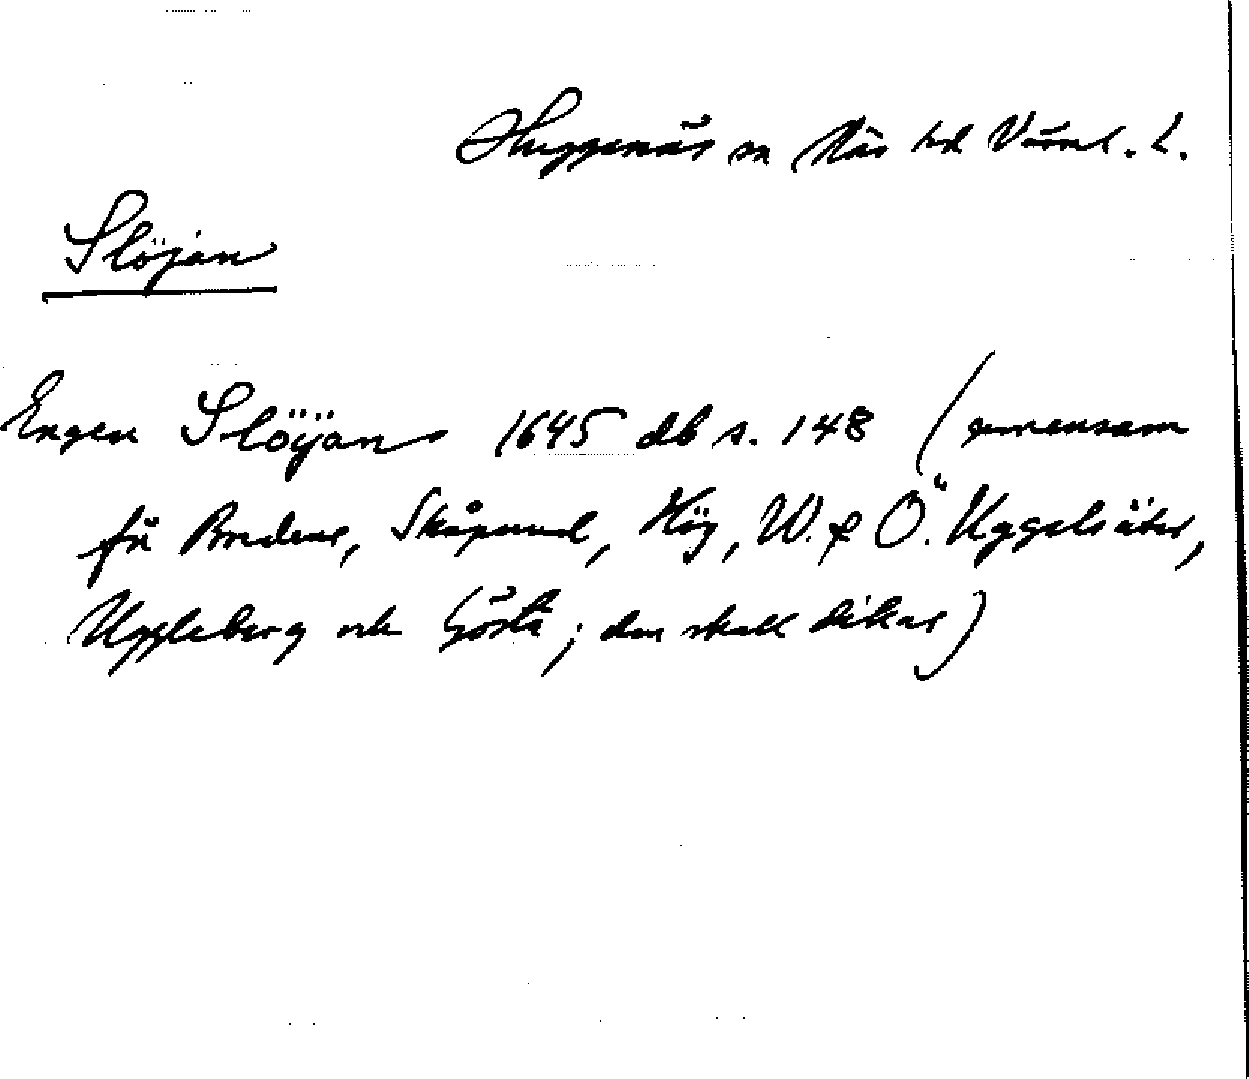 Huggenäs sn Näs hd Värml. L.
Slöjan
Engen Slöÿan 1645 db s. 148 (gemensam
för Bredene, Skåpund, Hög, W. & Ö. Uggelsäter,
Uggleberg och Gösta; den skall dikas)